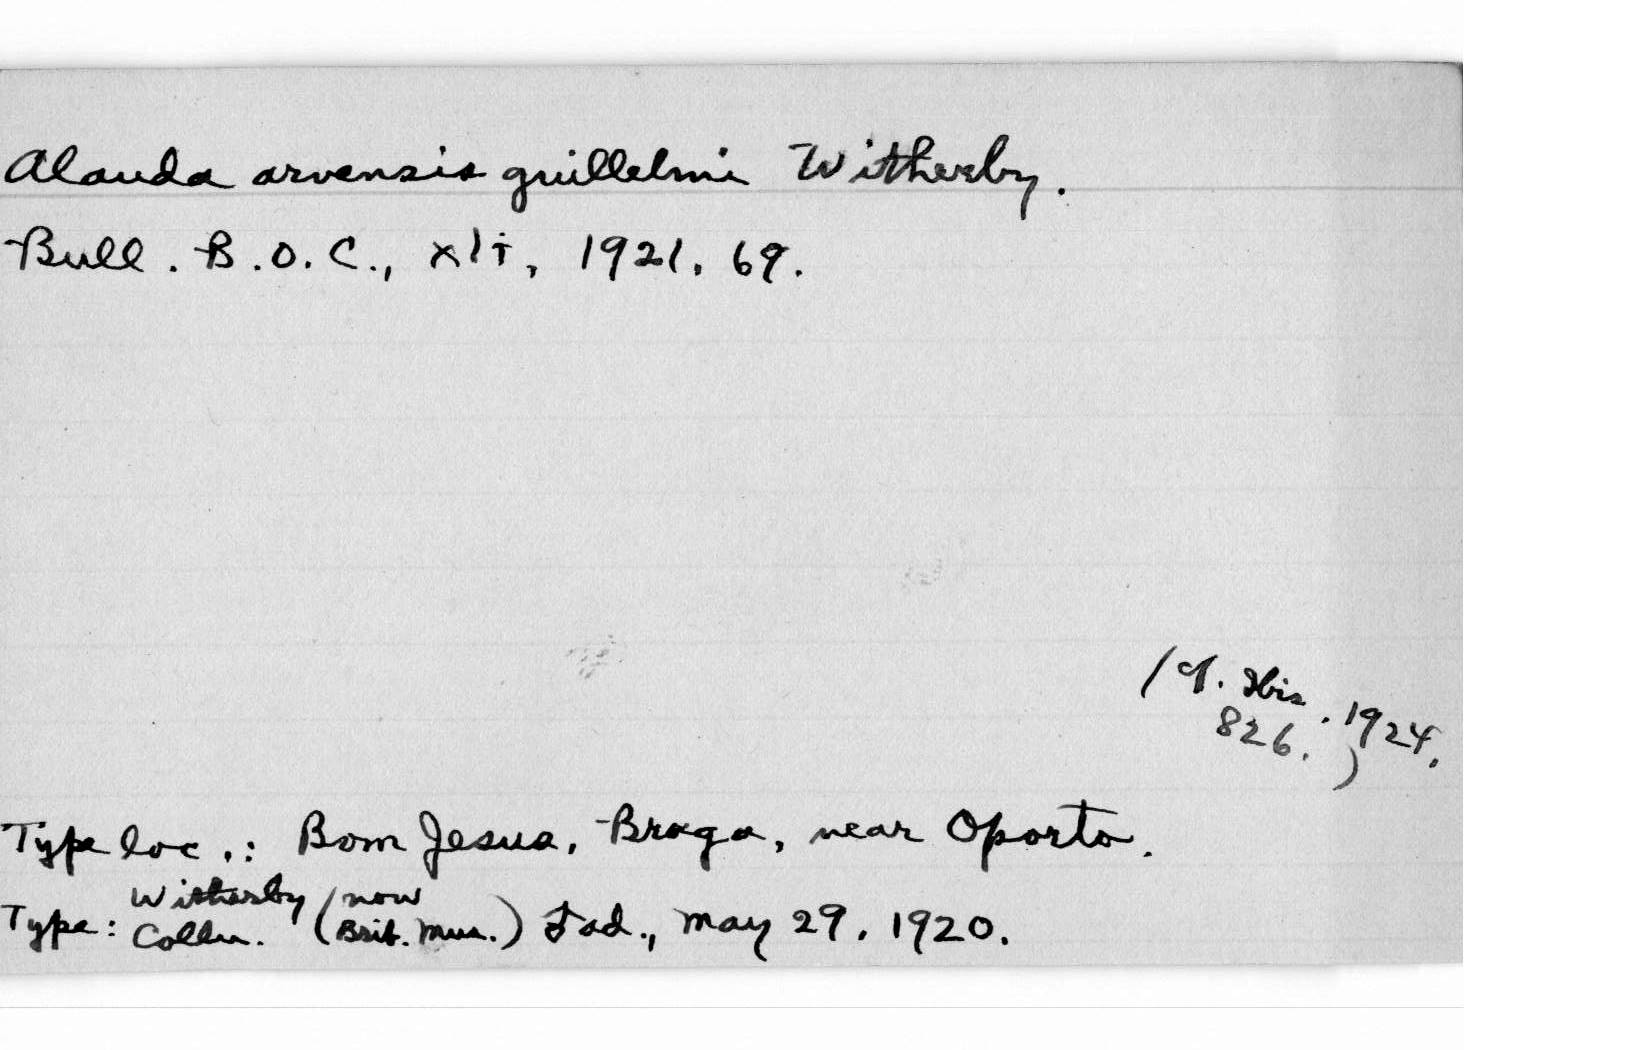 Alauda arvensis guillelmi Witherby.
Bull. B.O.C., xli, 1921, 69.
(Cf. Ibis. 1924.
826.)
Type loc.: Bom Jesus, Braga, near Oporto.
Type: Witherby Colln. (now Brit. Mus.) ad., May 29, 1920.